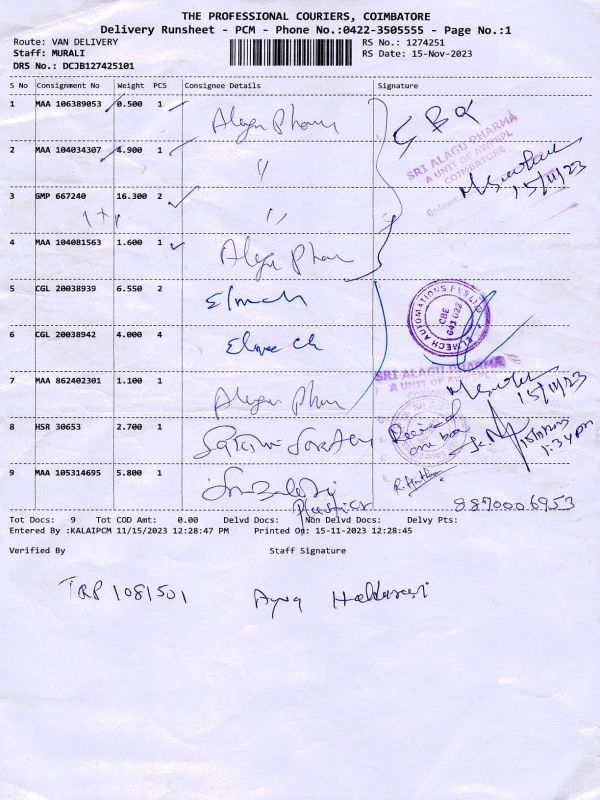 THE PROFESSIONAL COURIERS, COIMBATORE
Delivery Runsheet - PCM - Phone No.:0422-3505555 - Page No.:1
Route: VAN DELIVERY RS No.: 1274251
Staff: MURALI RS Date: 15-Nov-2023
DRS No.: DCJB127425101
S No Consignment No Weight PCS Consignee Details Signature
1 MAA 106389053 0.500 1 Alagu Pharm
SRI ALAGU PHARMA
A UNIT OF
COIMBATORE
2 MAA 104034307 4.900 1 "
15/11/23
3 GMP 667240 16.300 2 "
4 MAA 104081563 1.600 1 Alagu Pharm
5 CGL 20038939 6.550 2 Elmech
ELMECH AUTOMATIONS PVT LTD
CBE
641 022
6 CGL 20038942 4.000 4 Elmech
SRI ALAGU PHARMA
A UNIT OF
7 MAA 862402301 1.100 1 Alagu Pharm
15/11/23
8 HSR 30653 2.700 1
Received
one box
1:34 pm
9 MAA 105314695 5.800 1 Sri Balaji
Plastics
8870006953
Tot Docs: 9 Tot COD Amt: 0.00 Delvd Docs: Non Delvd Docs: Delvy Pts:
Entered By :KALAIPCM 11/15/2023 12:28:47 PM Printed On: 15-11-2023 12:28:45
Verified By Staff Signature
TRP 1081501